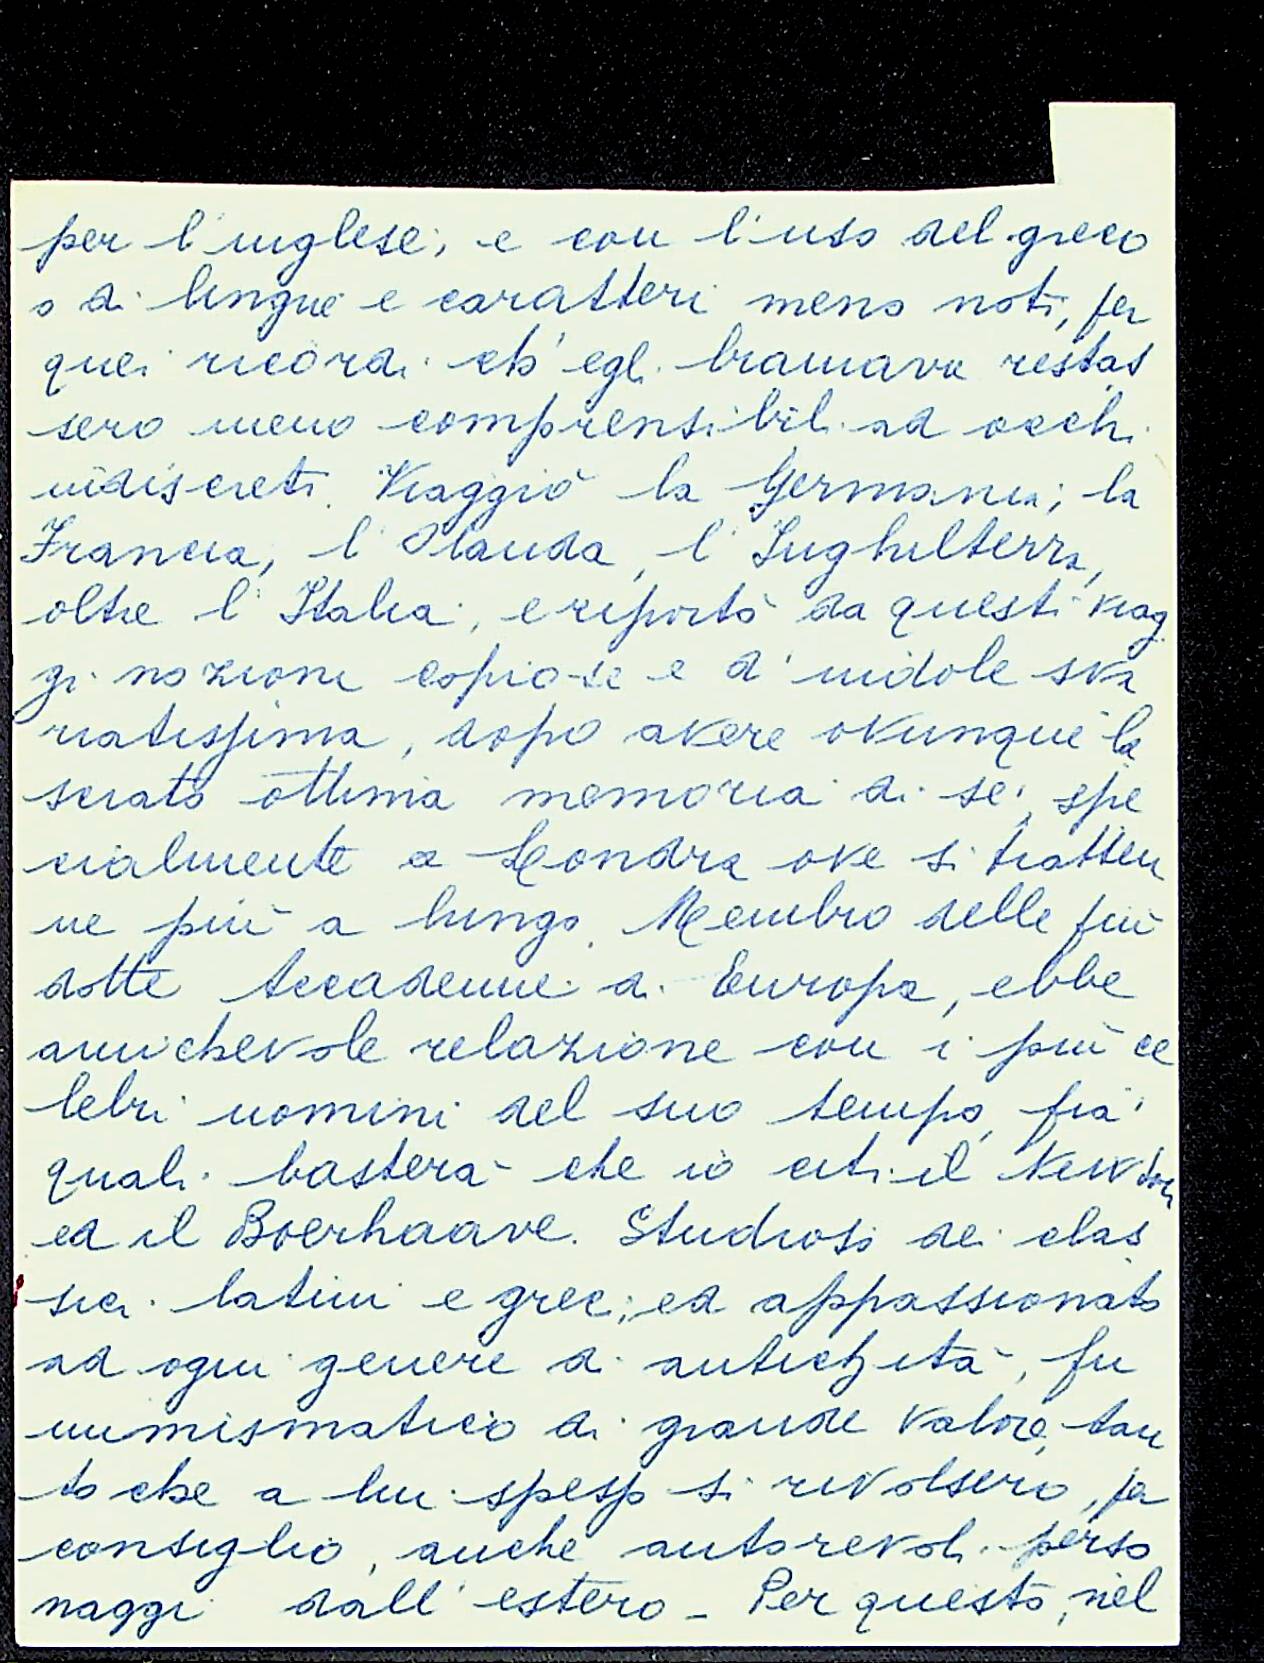 per l'inglese; e con l'uso del greco
o di lingue e caratteri meno noti, per
quei ricordi ch'egli bramava restas
sero meno comprensibili ad occhi
indiscreti. Viaggiò la Germania; la
Francia, l'Olanda, l'Inghilterra,
oltre l'Italia; e riportò da questi viag
gi nozioni copiose e d'indole sva
riatissima, dopo avere ovunque la
sciato ottima memoria di sè, spe
cialmente a Londra ove si tratten
ne più a lungo. Membro delle più
dotte Accademie di Europa, ebbe
amichevole relazione con i più ce
lebri uomini del suo tempo, fra'
quali basterà che io citi il Newton
ed il Boerhaave. Studioso dei clas
sici latini e greci; ed appassionato
ad ogni genere di antichità, fu
numismatico di grande valore, tan
to che a lui spesso si rivolsero, per
consiglio, anche autorevoli perso
naggi dall'estero - Per questo, nel